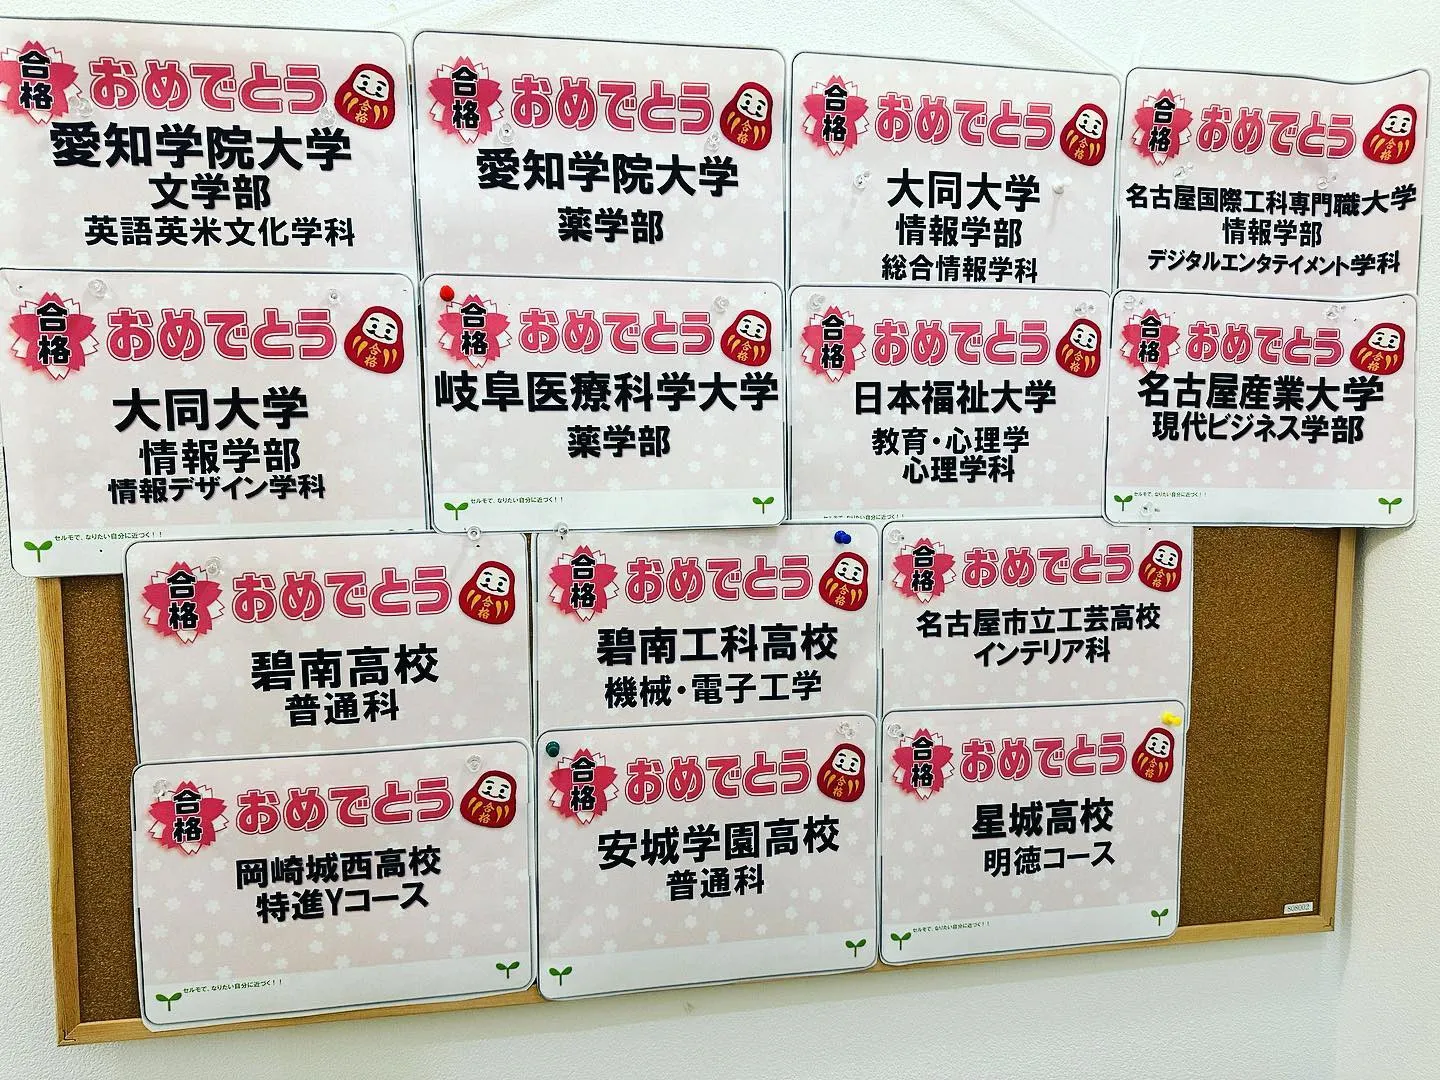 合格 おめでとう 合格
愛知学院大学
文学部
英語英米文化学科
合格 おめでとう 合格
愛知学院大学
薬学部
合格 おめでとう 合格
大同大学
情報学部
総合情報学科
合格 おめでとう 合格
名古屋国際工科専門職大学
情報学部
デジタルエンタテイメント学科
合格 おめでとう 合格
大同大学
情報学部
情報デザイン学科
セルモで、なりたい自分に近づく！！
合格 おめでとう 合格
岐阜医療科学大学
薬学部
セルモで、なりたい自分に近づく！！
合格 おめでとう 合格
日本福祉大学
教育・心理学
心理学科
セルモで、なりたい自分に近づく！！
合格 おめでとう 合格
名古屋産業大学
現代ビジネス学部
セルモで、なりたい自分に近づく！！
合格 おめでとう 合格
碧南高校
普通科
合格 おめでとう 合格
碧南工科高校
機械・電子工学
合格 おめでとう 合格
名古屋市立工芸高校
インテリア科
合格 おめでとう 合格
岡崎城西高校
特進Yコース
セルモで、なりたい自分に近づく！！
合格 おめでとう 合格
安城学園高校
普通科
合格 おめでとう 合格
星城高校
明徳コース
セルモで、なりたい自分に近づく！！
808002